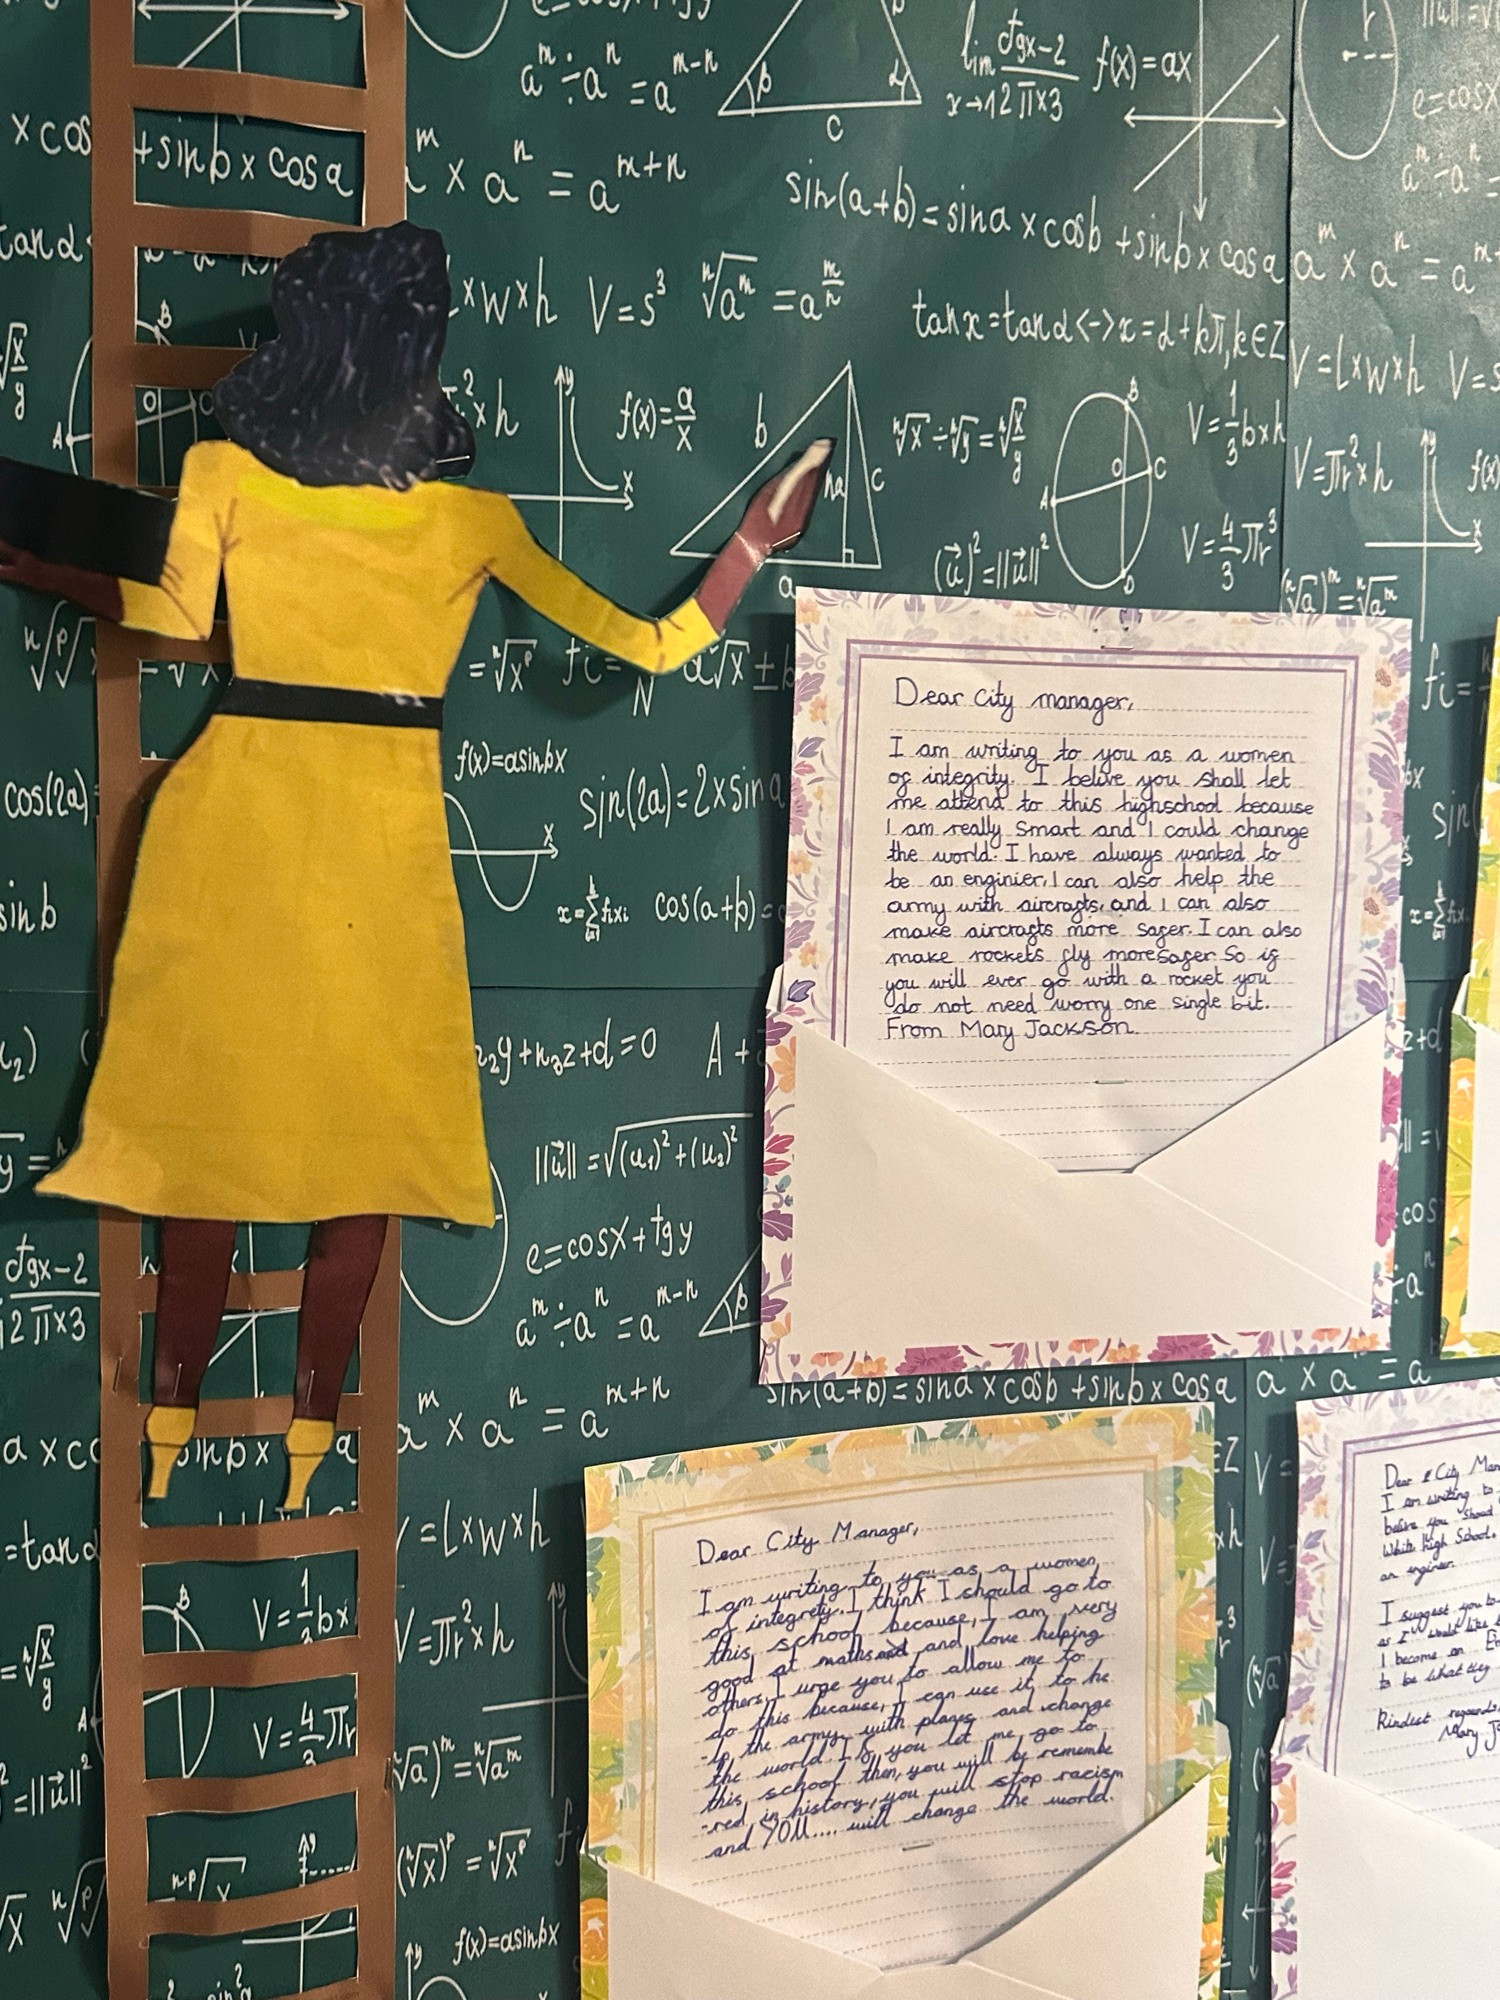 a^m ÷ a^n = a^m-n
lim ctgx-2 / x→1 2π×3
f(x)=ax
e=cosx
x cos
+sinb x cosa
a^m x a^n = a^m+n
sin(a+b)=sina x cosb +sinb x cosa
a^m x a^n = a^m
tanα
x w x h
V=s³
ⁿ√a^m = a^m/n
tanx=tanα<->x=α+kπ,k∈Z
V=lxwxh V=s
f(x)=a/x
ⁿ√x÷ⁿ√y=ⁿ√x/y
V=1/3bxh
V=πr²xh
(u)²=||u||²
V=4/3πr³
(ⁿ√a)^m=ⁿ√a^m
Dear City manager,
I am writing to you as a women
of integrity. I belive you shall let
me attend to this highschool because
I am really smart and I could change
the world. I have always wanted to
be an enginier, I can also help the
army with aircrafts, and I can also
make aircrafts more safer. I can also
make rockets fly more safer So if
you will ever go with a rocket you
do not need worry one single bit.
From Mary Jackson.
f(x)=asinbx
cos(2a)
sin(2a)=2xsina
sinb
cos(a+b)=
n₂y+n₃z+d=0
A+
||u||=√(u₁)²+(u₂)²
e=cosx+tgy
ctgx-2
2π×3
a^m ÷ a^n = a^m-n
a^m x a^n = a^m+n
sin(a+b)=sina x cosb +sinb x cosa
=tanα
=lxwxh
V=1/3bx
V=πr²xh
V=4/3πr
=||u||²
(ⁿ√a)^m=ⁿ√a^m
(ⁿ√x)^p=ⁿ√x^p
f(x)=asinbx
Dear City Manager,
I am writing to you as a women
of integrety. I think I should go to
this school because, I am very
good at maths and love helping
others, I urge you to allow me to
do this because, I can use it to he
-lp the army with planes and change
the world. If you let me go to
this school then, you will be remembe
-red in history, you will stop racism
and YOU.... will change the world.
Dear City Man
I am writing to
belive you should
White High School.
an engineer.
I suggest you to
as I would like t
I become an En
to be what they
Kindest regards
Mary J